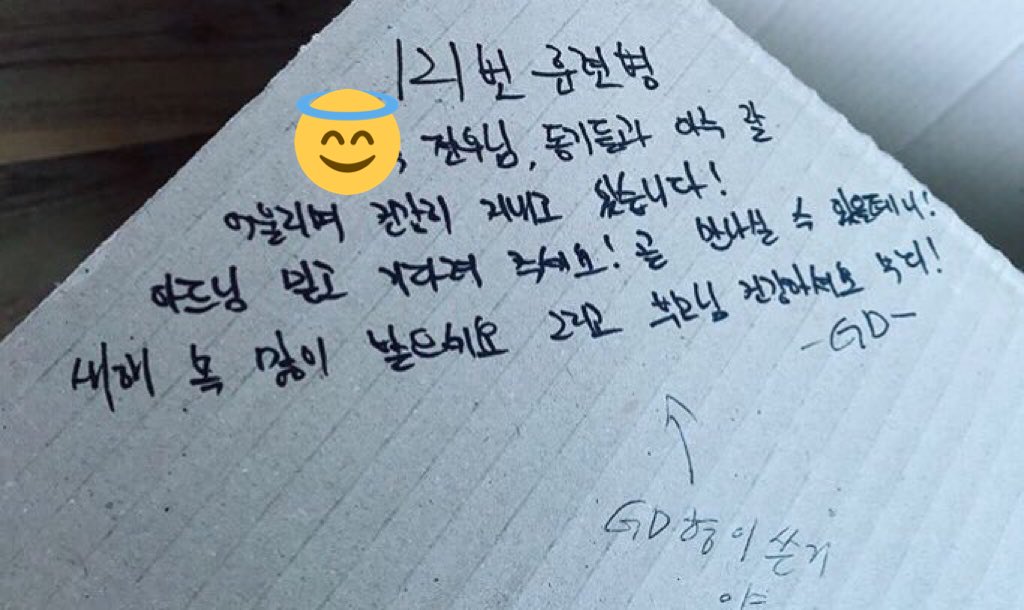 121번 훈련병
, 전우님, 동기들과 아주 잘
어울리며 건강히 지내고 있습니다!
아드님 믿고 기다려 주세요! 곧 만나실 수 있을테니!
새해 복 많이 받으세요 그리고 부모님 건강하세요 부디!
-GD-
GD형이 쓴거
야